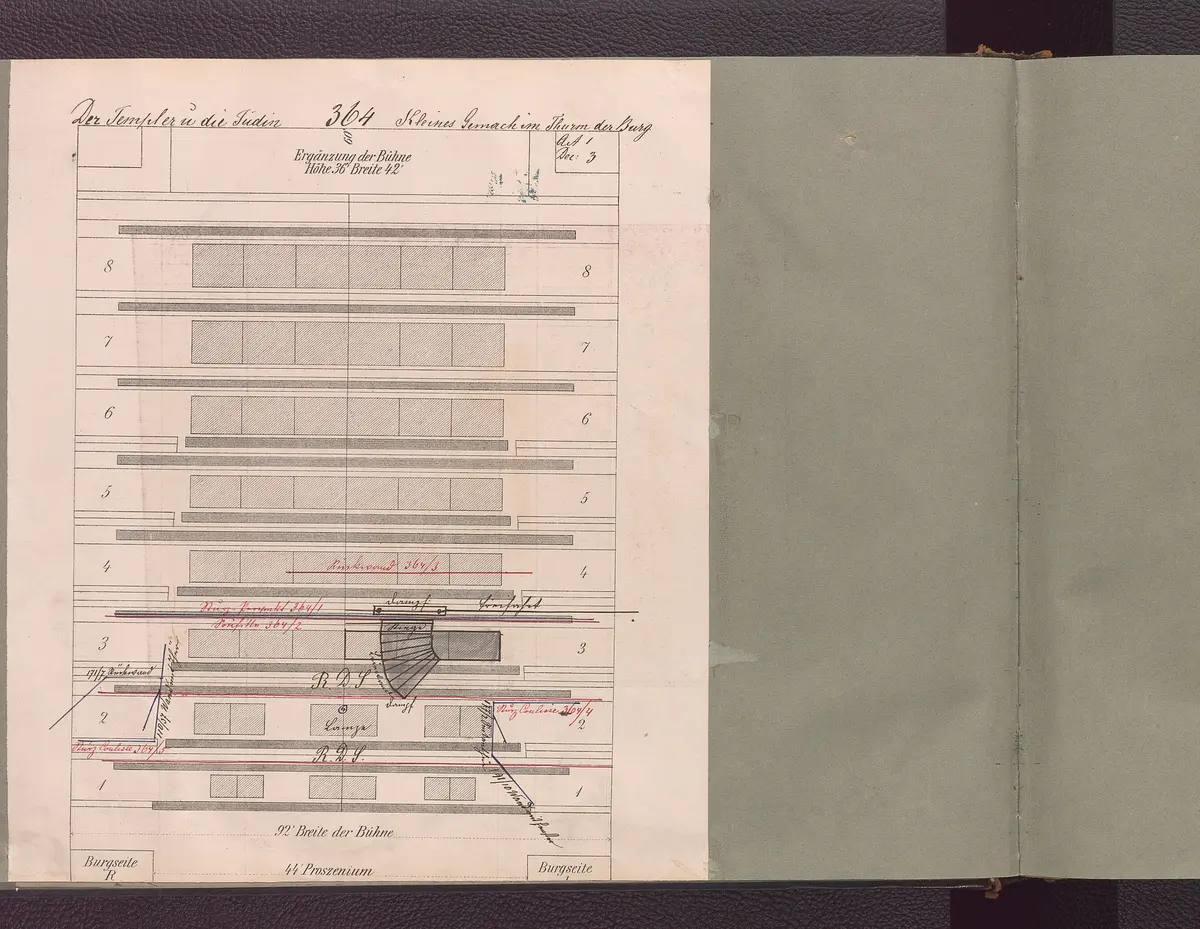 Der Templer u die Jüdin 364 Kleines Gemach im Thurm der Burg
Act 1
Dec: 3
60
Ergänzung der Bühne
Höhe 36' Breite 42'
8 8
7 7
6 6
5 5
4 Rückwand 364/3 4
Dampf Freifahrt
Kurz-Prospekt 364/1
Soufitte 364/2
Stiege
3 3
171/7 Rückwand
R. D. S
Dampf
Kurz Coulisse 364/4
2 Lampe 2
Kurz Coulisse 364/5
R. D. S.
1 1
92' Breite der Bühne
Burgseite
R
44' Proszenium
Burgseite